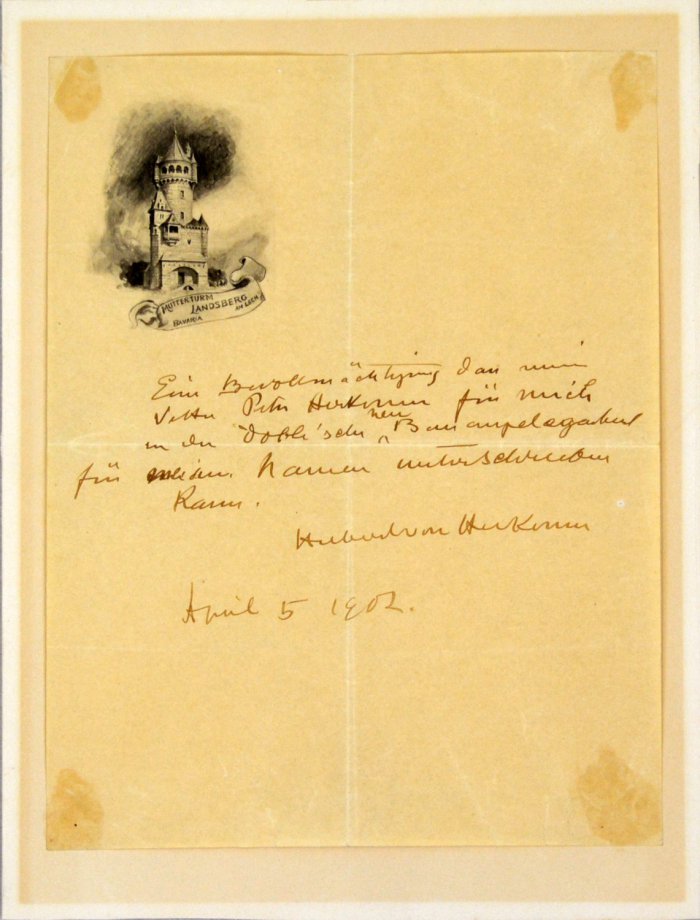 MUTTERTURM
LANDSBERG
AM LECH
BAVARIA
Eine Bevollmächtigung dass mein
Vetter Peter Herkomer für mich
in der neuen
für meinen Namen unterschreiben
kann.
Hubert von Herkomer
April 5 1902.